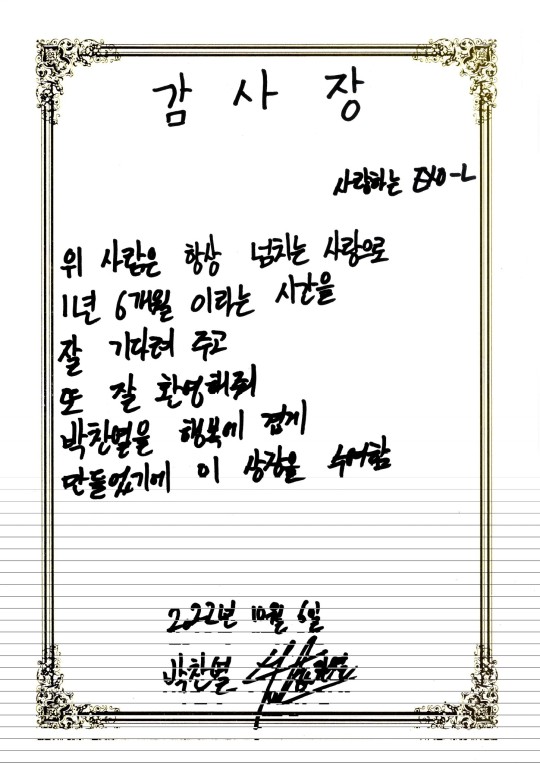 감 사 장
사랑하는 EXO-L
위 사람은 항상 넘치는 사랑으로
1년 6개월 이라는 시간을
잘 기다려 주고
또 잘 환영해줘
박찬열을 행복에 겹게
만들었기에 이 상장을 수여함
2022년 10월 6일
박찬열